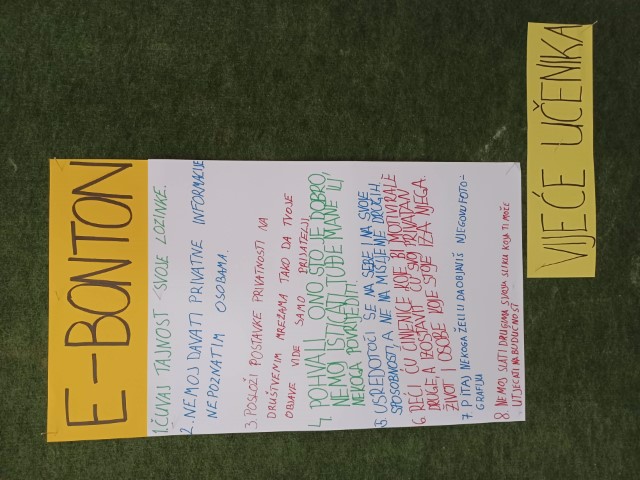 E-BONTON
1. ČUVAJ TAJNOST SVOJE LOZINKE.
2. NEMOJ DAVATI PRIVATNE INFORMACIJE
NEPOZNATIM OSOBAMA.
3. POSLOŽI POSTAVKE PRIVATNOSTI NA
DRUŠTVENIM MREŽAMA TAKO DA TVOJE
OBJAVE VIDE SAMO PRIJATELJI
4. POHVALI ONO ŠTO JE DOBRO,
NEMOJ ISTICATI TUĐE MANE ILI
NEKOGA POVRIJEDITI.
5. USREDOTOČI SE NA SEBE I NA SVOJE
SPOSOBNOSTI, A NE NA MIŠLJENJE DRUGIH.
6. REĆI ĆU ČINJENICE KOJE BI MOTIVIRALE
DRUGE, A IZOSTAVIT ĆU SVOJ PRIVATAN
ŽIVOT I OSOBE KOJE STOJE IZA NJEGA.
7 PITAJ NEKOGA ŽELI LI DA OBJAVIŠ NJEGOVU FOTO-
GRAFIJU
8. NEMOJ SLATI DRUGIMA SVOJU SLIKU KOJA TI MOŽE
UTJECATI NA BUDUĆNOST
VIJEĆE UČENIKA